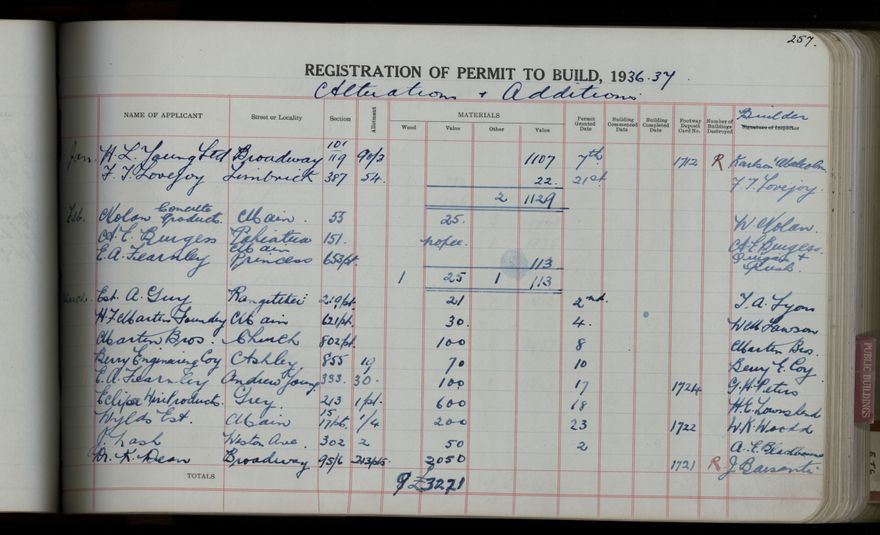 257.
REGISTRATION OF PERMIT TO BUILD, 1936-37.
Alterations + Additions
NAME OF APPLICANT Street or Locality Section Allotment MATERIALS Permit Granted Date Building Commenced Date Building Completed Date Footway Deposit Card No. Number of Buildings Destroyed Builder Signature of Inspector
Wood Value Other Value
Jan. H. L. Young Ltd Broadway 101 119 90/3 1107 7th 1712 R Malcolm
F. T. Lovejoy Limbrick 387 54. 22. 21st F T Lovejoy.
2 1129
Feb. Nolan Concrete Products. Main. 53 25. W Nolan.
A. E. Burgess Pahiatua 151. A E Burgess.
E. A. Fearnley Main Princess 653/pt. 113
1 25 1 113
March. Est. A. Guy Rangitikei 219/pt. 21 2nd. T. A. Lyon
H. F. Martin Foundry Main 621/pt. 30. 4. W M Lawson
Martin Bros. Church 802/pt. 100 8 Martin Bros.
Berry Engineering Coy Ashley 855 19 70 10 Berry E. Coy.
E. A. Fearnley Andrew Young 333. 30. 100 17 1724 G. H. Peters
Eclipse Products. Grey. 213 1 pt. 600 18 H. E. Townshend
Wylds Est. Main 15 17/pt. 1/4 200 23 1722 W. K.
J. Lash Weston Ave. 302 2 50 2 A. E.
Dr. K. Dean Broadway 95/6 2050 1721 R J Barsanti
TOTALS 9 £3271
PUBLIC BUILDINGS